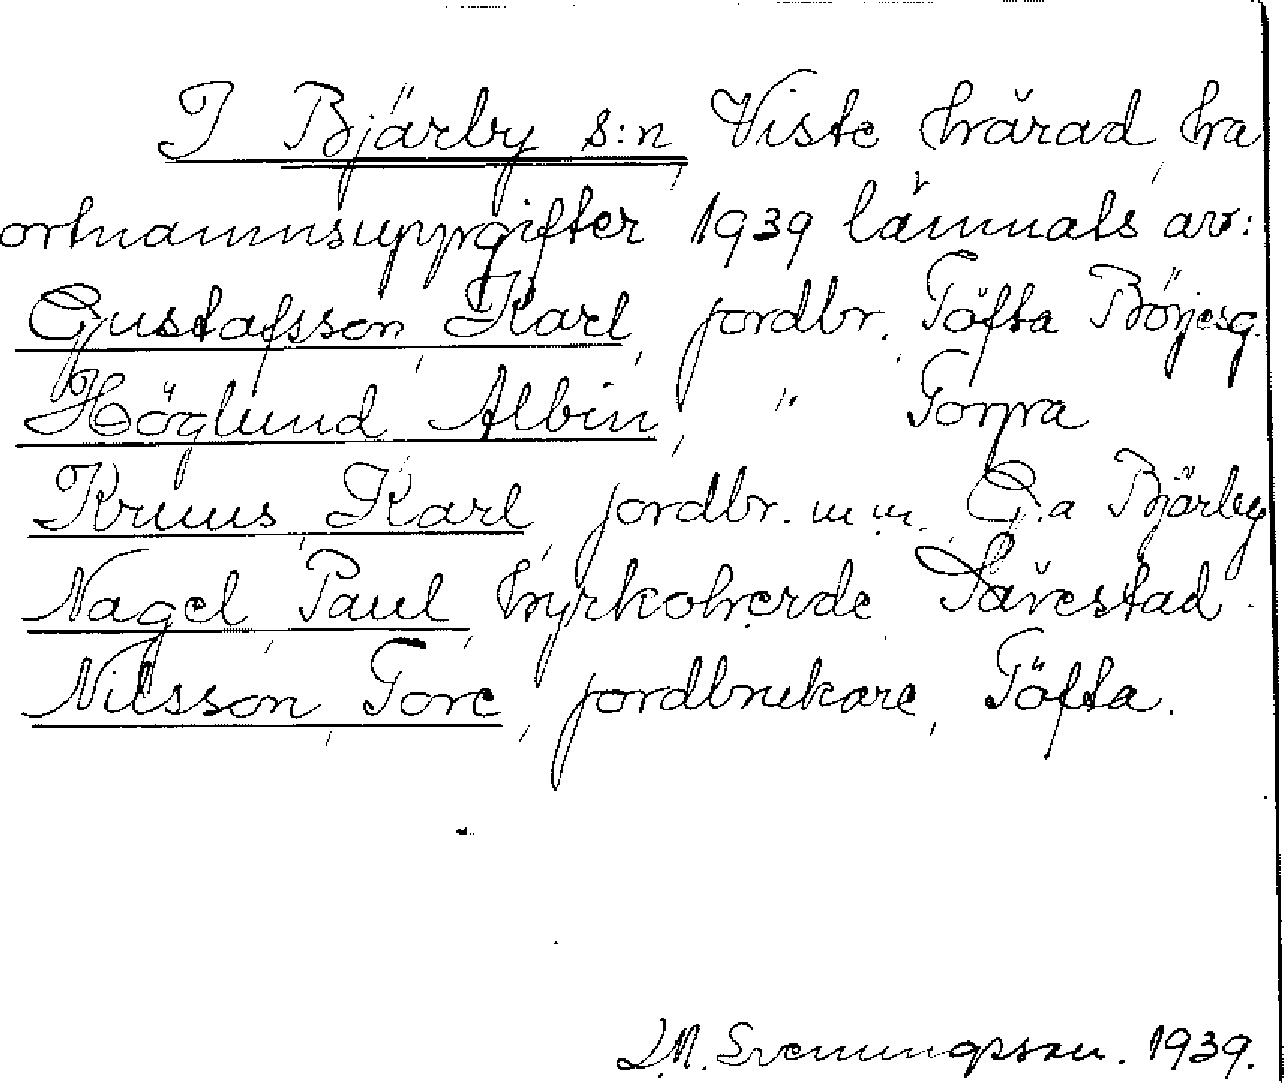 I Bjärby s:n, Viste härad, ha
ortnamnsuppgifter 1939 lämnats av:
Gustafsson, Karl, jordbr., Töfta Börjesg.
Höglund, Albin, " Torpra
Kruus, Karl, jordbr. m.m. G:a Bjärby
Nagel, Paul, kyrkoherde, Särestad.
Nilsson, Tore, jordbrukare, Töfta.
J.N. Svenungsson. 1939.